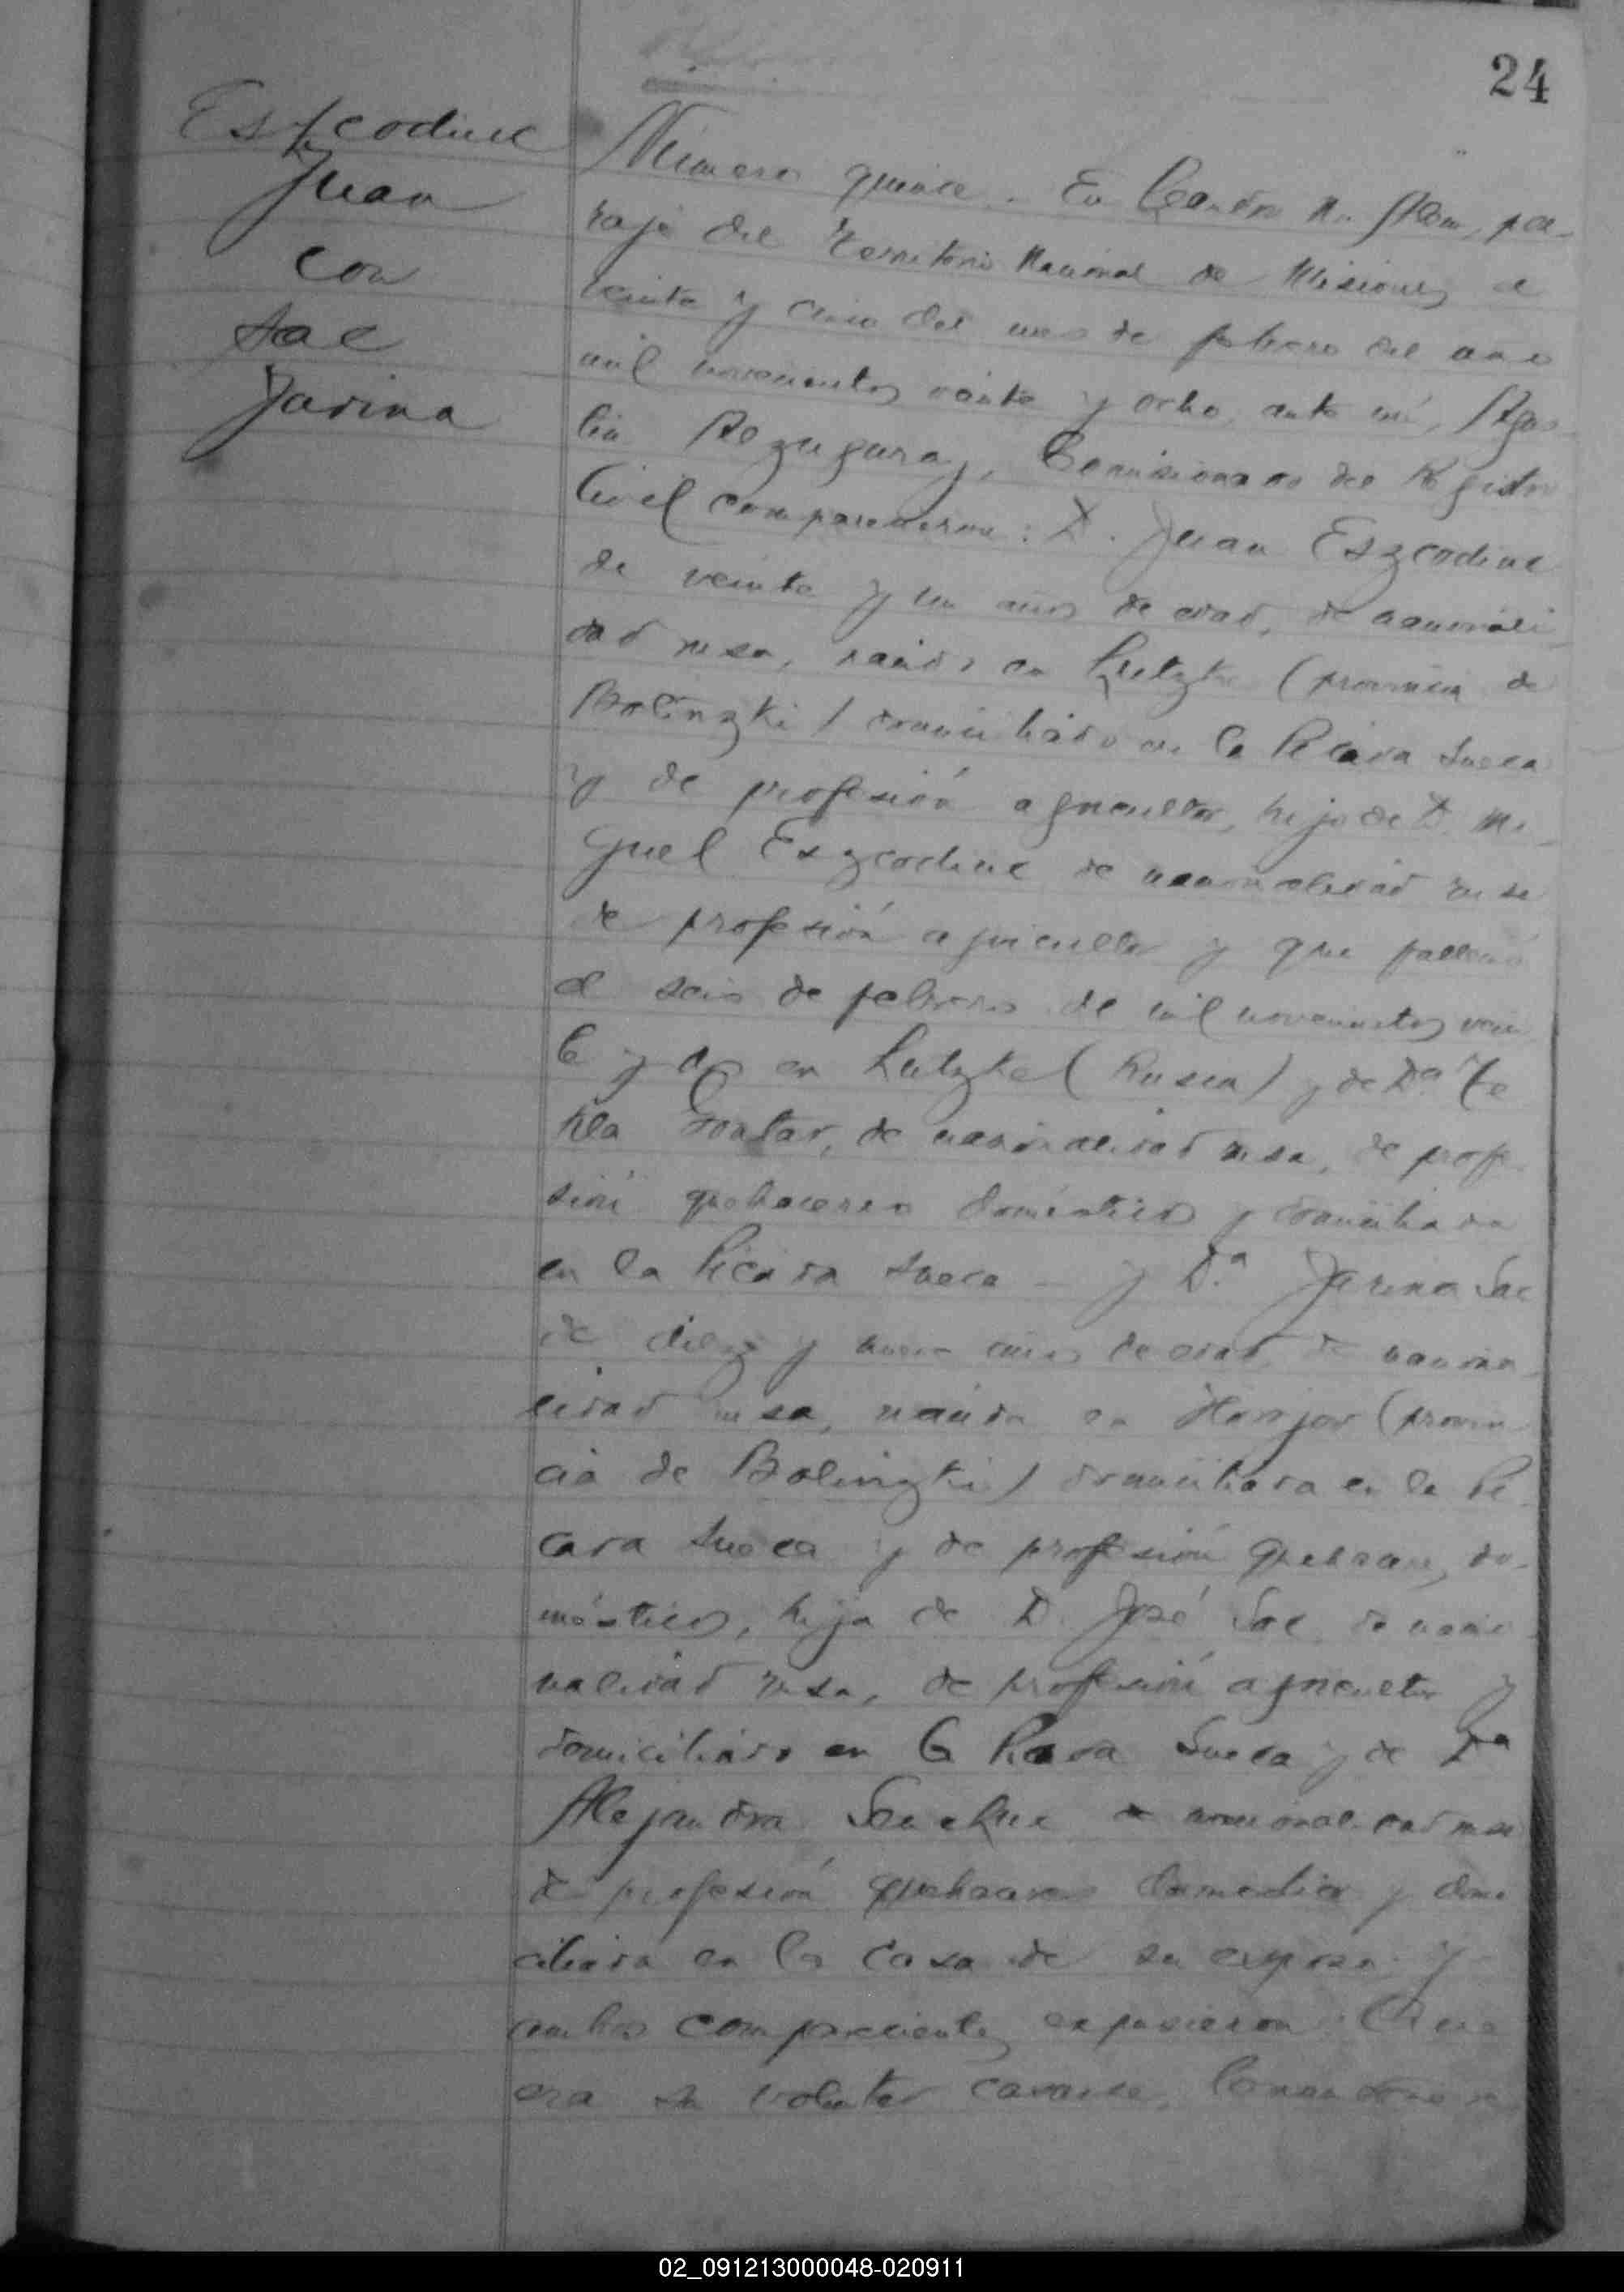 24
Eszcodine
Juan
con
Sac
Jarina
Número quince. En Leandro N. Alem, pa-
raje del Territorio Nacional de Misiones a
veinte y cinco del mes de febrero del año
mil novecientos veinte y ocho, ante mí, Agus-
tín Alzuguray, Comisionado del Registro
Civil comparecieron: D. Juan Eszcodine
de veinte y un años de edad, de nacionali-
dad rusa, nacido en Lutzke (provincia de
Bolinzki) domiciliado en la Picada Sueca
y de profesión agricultor, hijo de D. Mi-
guel Eszcodine de nacionalidad rusa
de profesión agricultor y que falleció
el seis de febrero de mil novecientos vein
te y dos en Lutzke (Rusia) y de Dª Te
kla Gontar, de nacionalidad rusa, de profe-
sión quehaceres domésticos y domiciliada
en la Picada Sueca - y D.ª Jarina Sac
de diez y nueve años de edad, de naciona-
lidad rusa, nacida en (provin-
cia de Bolinzki) domiciliada en la Pi-
cada Sueca y de profesión quehaceres do-
mésticos, hija de D. José Sac, de nacio-
nalidad rusa, de profesión agricultor y
domiciliado en la Picada Sueca y de Dª
Alejandra de nacionalidad rusa
de profesión quehaceres domésticos y domi
ciliada en la casa de su esposo y
ambos comparecientes expusieron: Que
era su voluntad casarse,
02_091213000048-020911